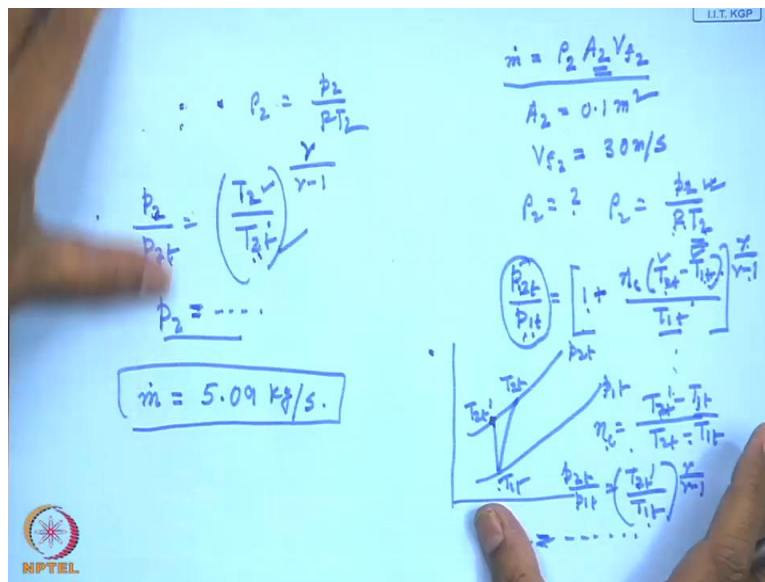 I.I.T. KGP
ρ₂ = p₂ / RT₂
p₂ / p₂ₜ = (T₂ / T₂ₜ)^(γ/(γ-1))
p₂ = -----
ṁ = 5.09 kg/s.
ṁ = ρ₂ A₂ Vf₂
A₂ = 0.1 m²
Vf₂ = 30 m/s
ρ₂ = ? ρ₂ = p₂ / RT₂
p₂ₜ / p₁ₜ = [1 + ηc (T₂ₜ - T₁ₜ) / T₁ₜ]^(γ/(γ-1))
p₂ₜ
T₂ₜ' T₂ₜ p₁ₜ
T₁ₜ
ηc = (T₂ₜ' - T₁ₜ) / (T₂ₜ - T₁ₜ)
p₂ₜ / p₁ₜ = (T₂ₜ' / T₁ₜ)^(γ/(γ-1))
= ------
NPTEL